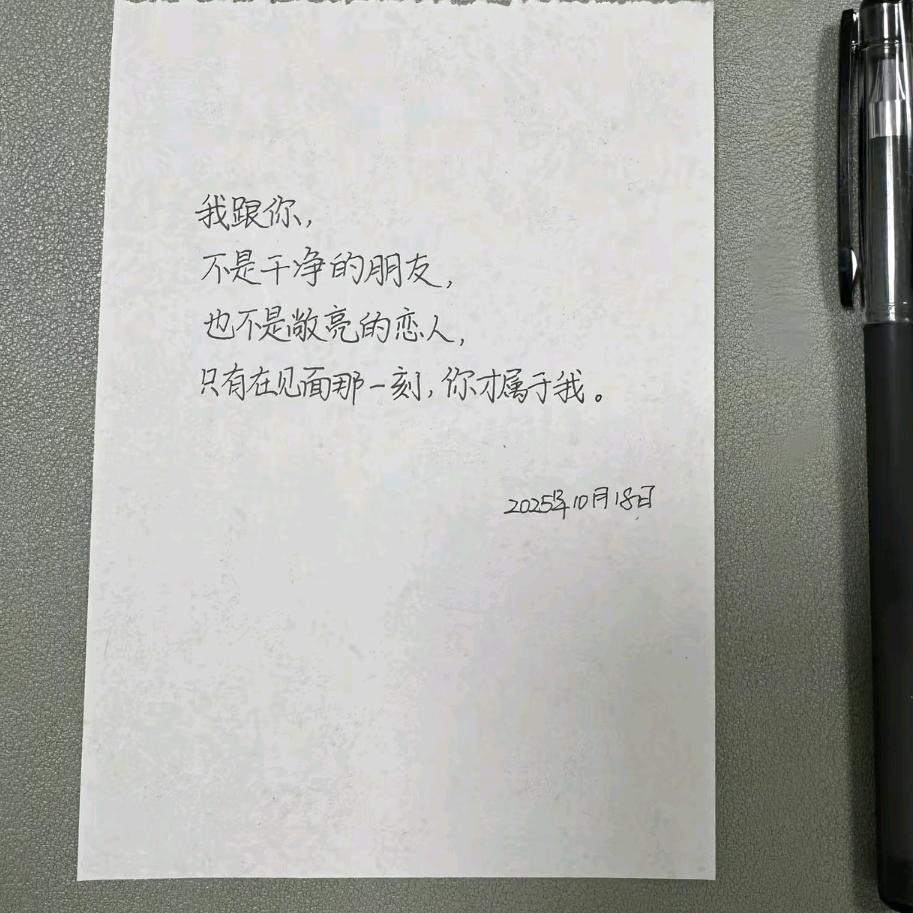 我跟你，
不是干净的朋友，
也不是敞亮的恋人，
只有在见面那一刻，你才属于我。
2025年10月18日